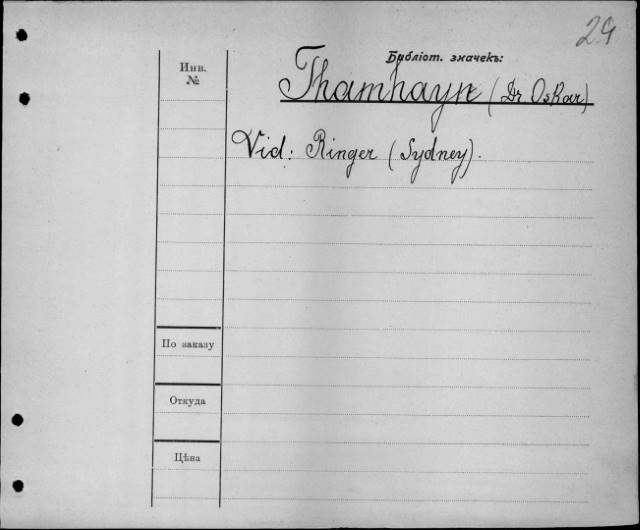 29
Библіот. значекъ:
Инв.
№
Thamhayn (Dr. Oskar)
Vid: Ringer (Sydney).
По заказу
Откуда
Цѣна